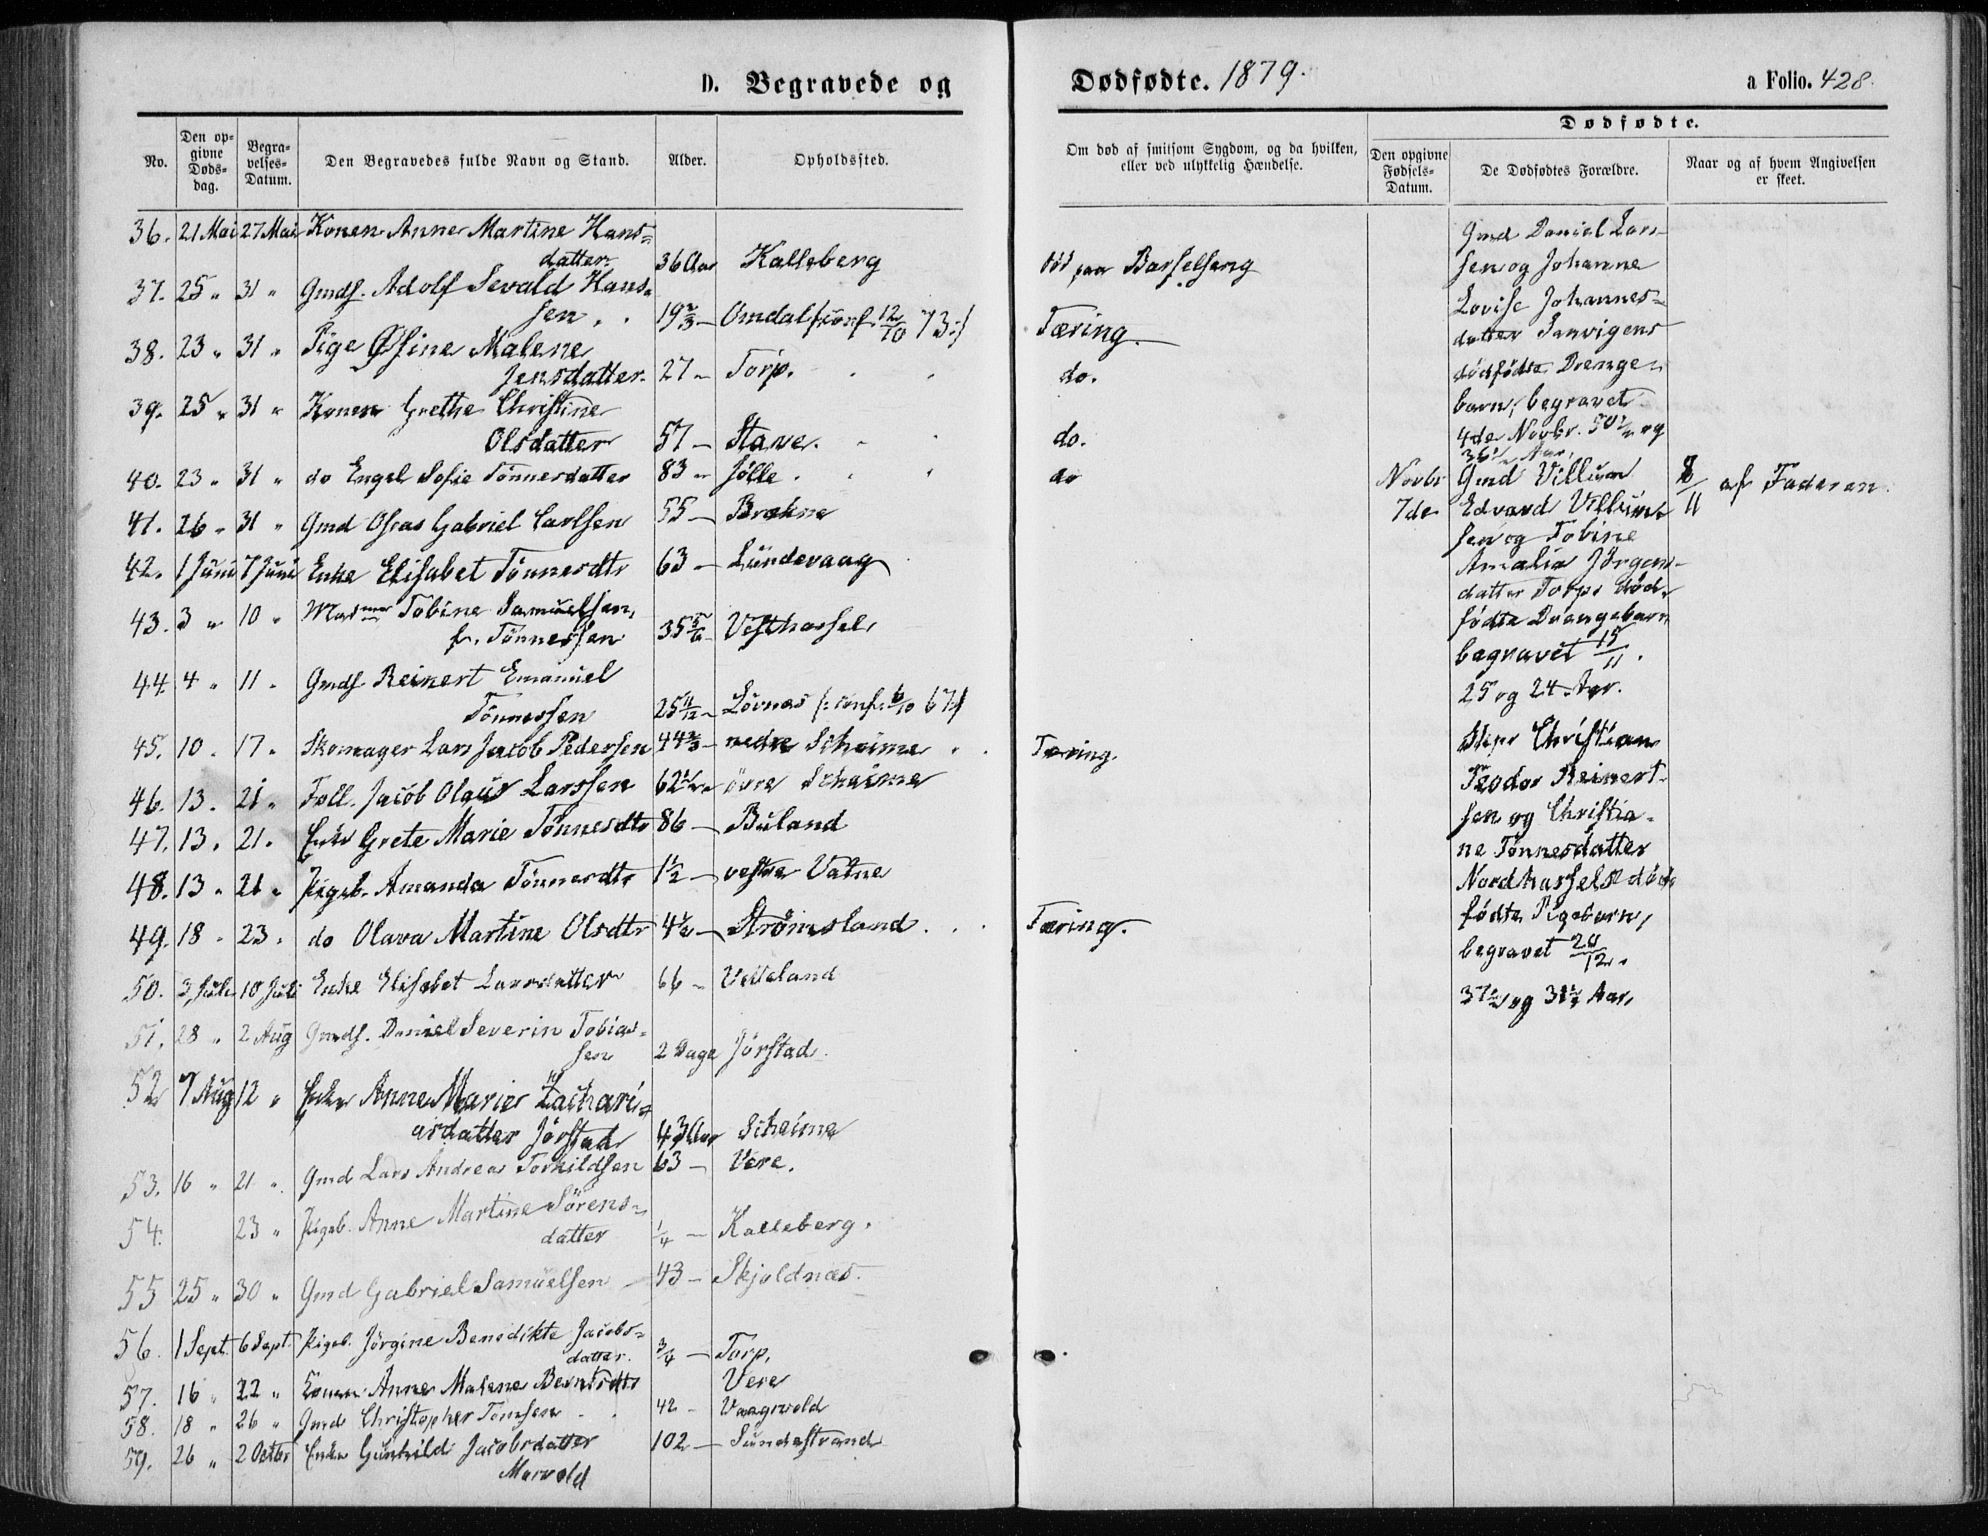 D. Begravede og Dødfødte. 1879. a Folio. 428.
No.
Den opgivne Dødsdag.
Begravelses-Datum.
Den Begravedes fulde Navn og Stand.
Alder.
Opholdssted.
Om død af smitsom Sygdom, og da hvilken, eller ved ulykkelig Hændelse.
Dødfødte.
Den opgivne Fødsels-Datum.
De Dødfødtes Forældre.
Naar og af hvem Angivelsen er skeet.
36. 21 Mai 27 Mai Konen Anne Martine Hans-
datter 36 Aar Kalleberg død paa Barselseng
37. 25 " 31 " Gmds. Adolf Sevald Hans-
sen 19 2/3 — Omdal /:conf. 12/10 73:/ Tæring.
38. 23 " 31 " Pige Øsine Malene
Jensdatter 27 — Torp. do.
39. 25 " 31 " Konen Grethe Christine
Olsdatter 57 — Stave. do.
40. 23 " 31 " do Engel Sofie Tönnesdatter 83 — Jølle. do
41. 26 " 31 " Gmd Osras Gabriel Carlsen 55 — Brækne
42. 1 Juni 7 Juni Enke Elisabet Tönnesdtr 63 — Lundevaag
43. 3 " 10 " Mad Tobine Samuelsen,
f. Tönnessen 35 5/6 — Vesthassel,
44. 4 " 11 " Gmds Reinert Emanuel
Tönnessen 25 11/12 — Lövnæs /:conf. 6/10 67:/
45. 10 " 17 " Skomager Lars Jacob Pedersen 44 2/3 — nedre Scheime Tæring.
46. 13 " 21 " Føll. Jacob Olaus Larssen 62 1/2 — øvre Scheime
47. 13 " 21 " Enke Grete Marie Tönnesdtr 86 — Buland
48. 13 " 21 " Pigeb. Amanda Tönnesdtr 1 1/2 — vestre Vatne
49. 18 " 23 " do Olava Martine Olsdtr 4 1/2 — Strömsland Tæring.
50. 3 Juli 10 Juli Enke Elisabet Larsdatter 66 — Vetteland
51. 28 " 2 Aug Gmds. Daniel Severin Tobias-
sen 2 Dage Jørstad.
52 7 Aug 12 " Enke Anne Marie Zachari-
asdatter Jørstad 43 Aar Scheime
53. 16 " 21 " Gmd Lars Andreas Torkildsen 63 — Vere.
54. 23 " Pigeb. Anne Martine Sörens-
datter 1/4 — Kalleberg.
55 25 " 30 " Gmd Gabriel Samuelsen 43 — Skjoldnæs.
56. 1 Sept. 6 Sept. Pigeb. Jörgine Benedikte Jacobs-
datter. 3/4 — Torp.
57. 16 " 22 " Konen Anne Malene Berntsdtr Vere
58. 18 " 26 " Gmd Christopher Tomsen 42 — Vaagevold
59. 26 " 2 Octbr Enke Gunhild Jacobsdatter 102 — Sundestrand
Marvold
Gmd Daniel Lars-
sen og Johanne
Lovise Johannes-
datter Sanvigens
dødfødte Drenge-
barn, begravet
4de Novbr. 50 1/2 og
36 1/2 Aar.
Novbr 7de Gmd Villum 8/11 af Faderen.
Edvard Villum-
sen og Tobine
Amalia Jörgens-
datter Torps død-
fødte Drengebarn
begravet 15/11.
25 og 24 Aar.
Skpr Christian
Teodor Reinert-
sen og Christia-
ne Tönnesdatter
Nordhassels død-
fødte Pigebarn,
begravet 20/12.
37 1/2 og 31 1/2 Aar,